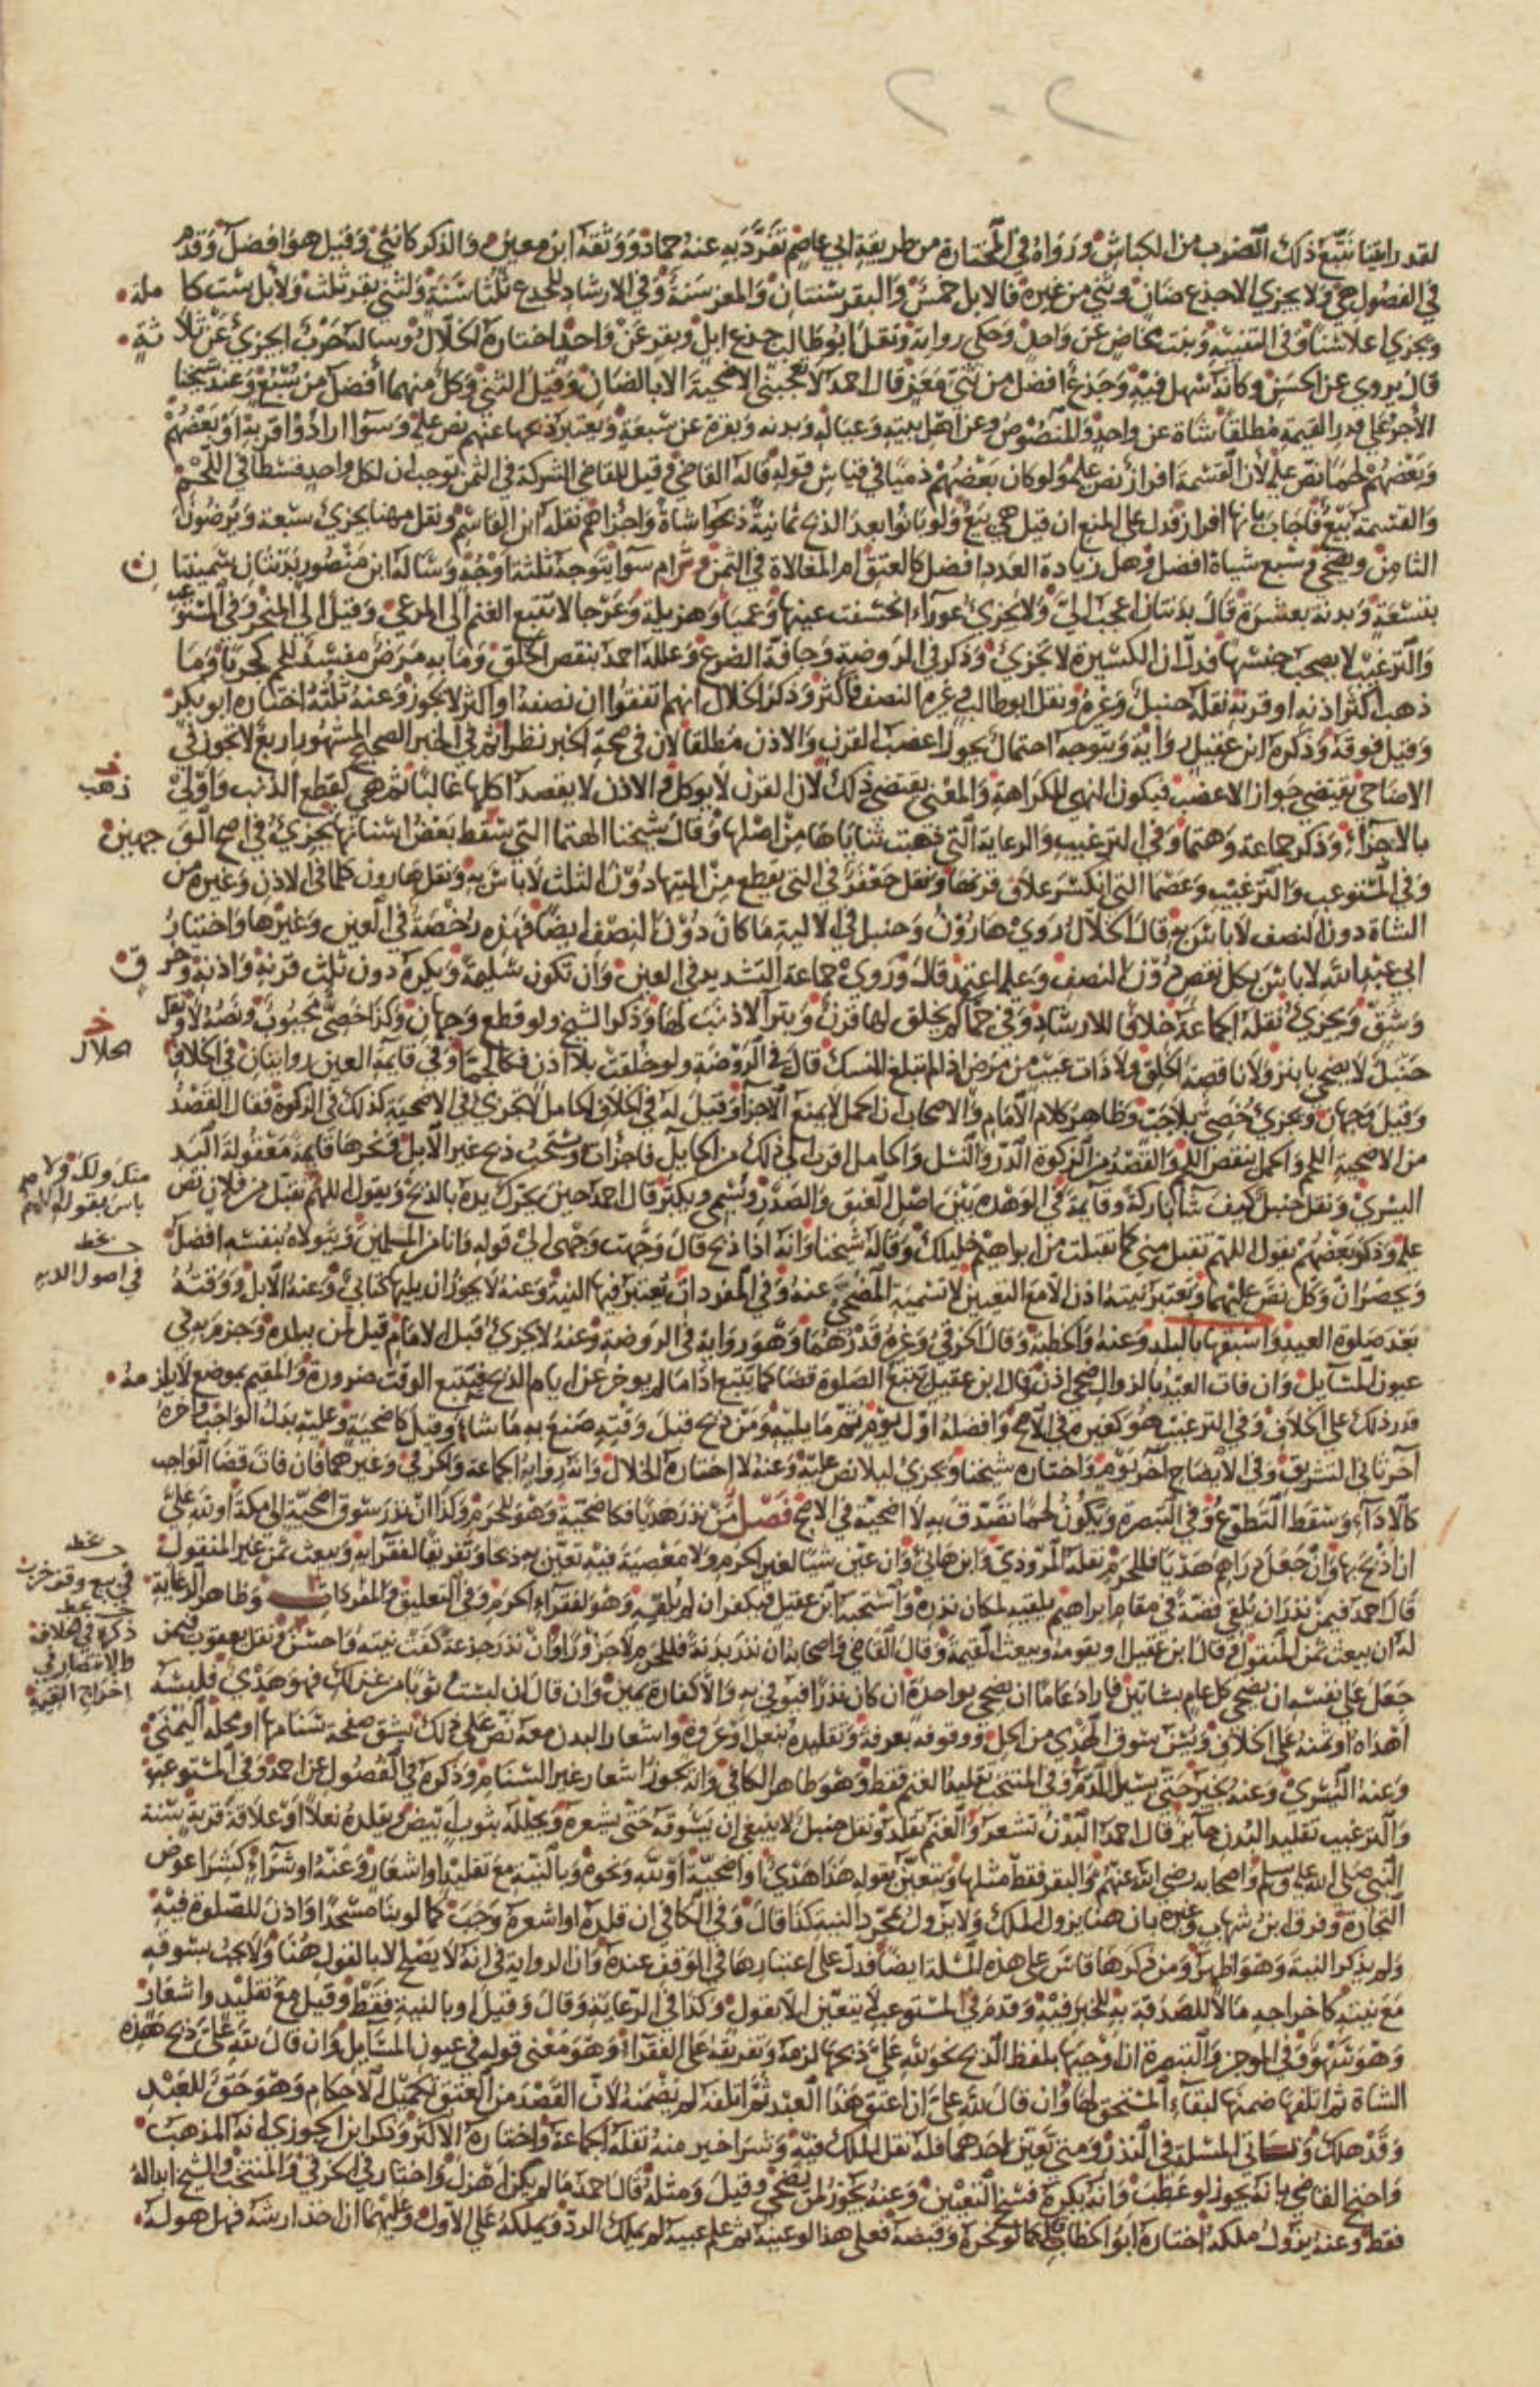 لقد رايتنا نتبع ذلك الضرب من الكباش ورواه في المختارة من طريق ابن ابي عاصم تفرد به عنه حماد ووثقه ابن معين والذكر كانثى وقيل هو افضل وقدم
في الفصول هي ولا يجزي الا جذع ضان وثني من غيره فالابل خمس والبقر سنتان والمعز سنة وفي الارشاد للجذع ثلثا سنة ولثني بقر ثلث ولابل ست كا ملة
ويجزي اعلا سنا وفي التنبيه وبنت مخاض عن واحد وحكي رواية ونقل ابو طالب جذع ابل وبقر عن واحد اختاره الخلال وساله حرب ايجزئ عن ثلا ثة
قال يروى عن الحسن وكانه سهل فيه وجذع افضل من ثني معز قال احمد لا تعجبني الاضحية الا بالضان وقيل الثني وكل منهما افضل من سبع وعند شيخنا
الاجر على قدر القيمة مطلقا شاة عن واحد والمنصوص وعن اهل بيته وعياله وبدنة وبقرة عن سبعة ويعتبر ذبحها عنهم نص عليه وسوا ارادوا قربة او بعضهم
وبعضهم لحما نص عليه لان القسمة افراز نص عليه ولو كان بعضهم ذميا في قياس قوله قاله القاضي وقيل للقاضي الشركة في الثمن توجب ان لكل واحد قسطا في اللحم
والقسمة بيع فاجاب بانها افراز فدل على المنع ان قيل هي بيع ولو بانوا بعد الذبح ثمانية ذبحوا شاة واجزاهم نقله ابن القاسم ونقل مهنا يجزئ سبعة ويرضون
الثامن ويضحي وسبع شياه افضل وهل زيادة العدد افضل كالعتق ام المغالاة في الثمن ام سوا يتوجه ثلثة اوجه وساله ابن منصور بدنتان سمينتا ن
بتسعة وبدنة بعشرة قال بدنتان اعجب الي ولا يجزئ عوراء انخسفت عينها وعميا وهزيلة وعرجا لا تتبع الغنم الى المرعى وقيل الى المنحر وفي المستوعب
والترغيب لا يصحب جنسها فدل ان الكسيرة لا تجزئ وذكر في الروضة وجافة الضرع وعلله احمد بنقص الخلق وما به مرض مفسد للحم كجربا وما
ذهب اكثر اذنه او قرنه نقله حنبل وغيره ونقل ابو طالب وغيره النصف فاكثر وذكر الخلال انهم اتفقوا ان نصفه او اكثر لا يجوز وعنه ثلثه اختاره ابو بكر
وقيل فوقه وذكره ابن عقيل رواية ويتوجه احتمال يجوز اعضب القرن والاذن مطلقا لان في صحة الخبر نظرا ثم في الخبر الصحيح المشهور اربع لا تجوز في
الاضاحي يقتضي جواز الاعضب فيكون النهي للكراهة والمعنى يقتضي ذلك لان القرن لا يوكل والاذن لا يقصد اكلها غالبا ثم هي كقطع الذنب واولى
بالاجزاء وذكر جماعة وهتما وفي الترغيب والرعاية التي ذهبت ثناياها من اصلها وقال شيخنا الهتما التي سقط بعض اسنانها يجزئ في اصح الو جهين
وفي المستوعب والترغيب وعضما التي انكسر غلاف قرنها ونقل جعفر في التي يقطع من اليتها دون الثلث لا باس به ونقل هارون كلما في الاذن وغيره من
الشاة دون النصف لا باس به قال الخلال روى هارون وحنبل في الالية ما كان دون النصف ايضا فهذه رخصة في العين وغيرها واختيار
ابي عبد الله لا باس بكل نقص دون النصف وعليه اعتمد قال وروى جماعة التشديد في العين وان تكون سليمة ويكره دون ثلث قرنه واذنه وخر ق
وشق ويجزئ نقله الجماعة خلافا للارشاد وفي جما لم يخلق لها قرن وبترا لا ذنب لها وذكر الشيخ ولو قطع وجهان وكذا خصي مجبوب ونصه لا ونقل
حنبل لا يضحى بابتر ولا ناقصة الخلق ولا ذات عيب من مرض اذا لم تبلغ المنسك قال في الروضة ولو خلقت بلا اذن فكالجما وفي قايمة العين روايتان في الخلاف
وقيل وجهان ويجزئ خصي بلا جب وظاهر كلام الامام والاصحاب ان الحمل لا يمنع الاجزا وقيل له في الخلاف الحامل لا تجزئ في الاضحية كذلك في الزكوة فقال القصد
من الاضحية اللحم والحمل ينقص اللحم والقصد من الزكوة الدر والنسل والحامل اقرب الى ذلك من الحايل فاجزات ويستحب ذبح غير الابل ونحرها قايمة معقولة اليد
اليسرى ونقل حنبل كيف شا باركة وقايمة في الوهدة بين اصل العنق والصدر ويسمي ويكبر قال احمد حين يحرك يده بالذبح ويقول اللهم تقبل من فلان نص
عليه وذكر بعضهم يقول اللهم تقبل مني كما تقبلت من ابراهيم خليلك وقاله شيخنا وانه اذا ذبح قال وجهت وجهي الى قوله وانا من المسلمين ويتولاه بنفسه افضل
ويحضر ان وكل نص عليهما وتعتبر نيته اذن الا مع التعيين لا تسمية المضحى عنه وفي المفردات تعتبر فيها النية وعنه لا يجوز ان يليها كتابي وعنه الابل ووقته
بعد صلوة العيد واسبقها بالبلد وعنه والخطبة وقال الخرقي وغيره قدرهما وهو رواية في الروضة وعنه لا يجزئ قبل الامام قيل لمن ببلده وجزم به في
عيون المسايل وان فات العيد بالزوال ضحى اذن وقال ابن عقيل يتبع الصلوة قضا كما يتبع اذا ما لم يوخر عن ايام الذبح فيتبع الوقت ضرورة والمقيم بموضع لا يلز مه
قدر ذلك على الخلاف وفي الترغيب هو كغيره في الاصح وافضله اول يوم ثم ما يليه ومن ذبح قبل وقته صنع به ما شاء وقيل كاضحية وعليه بدل الواجب واخره
اخر ثاني التشريق وفي الايضاح اخر يوم واختاره شيخنا ويجزئ ليلا نص عليه وعنه لا اختاره الخلال وانه رواية الجماعة والخرقي وغيرهما فان فات قضا الواجب
كالاداء وسقط التطوع وفي التبصرة ويكون لحما تصدق به لا اضحية في الاصح فصل من نذر هديا فكاضحية وهو للحرم وكذا ان نذر سوق اضحية الى مكة او لله علي
ان اذبح بها وان جعل دراهم هديا فللحرم نقله المروذي وابن هانئ وان عين شيئا لغير الحرم ولا معصية فيه تعين به ذبحا وتفريقا لفقرائه ويبعث ثمن غير المنقول
قال احمد فيمن نذر ان يلقي فضة في مقام ابراهيم يلقيه لمكان نذره واستحبه ابن عقيل فيكفر ان لم يلقه وهو لفقراء الحرم وفي التعليق والمفردات وظاهر الرعاية
له ان يبعث ثمن المنقول وقال ابن عقيل او يقومه ويبعث القيمة وقال القاضي واصحابه ان نذر بدنة فللحرم لا جزورا وان نذر جذعة كفت ثنية واحسن ونقل يعقوب فيمن
جعل على نفسه ان يضحي كل عام بشاتين فاراد عاما ان يضحي بواحدة ان كان نذرا فيوفي به والا كفارة يمين وان قال ان لبست ثوبا من غزلك فهو هدي فلبسه
اهداه او ثمنه على الخلاف ويسن سوق الهدي من الحل ووقوفه بعرفة وتقليده بنعل او عروة واشعار البدن معه نص على ذلك بشق صفحة سنامها او محله اليمنى
وعنه اليسرى وعنه يخير حتى يسيل الدم وفي المنتخب تقليد الغنم فقط وهو ظاهر الكافي وانه يجوز اشعار غير السنام وذكره في الفصول عن احمد وفي المستوعب
والترغيب تقليد البدن جايز قال احمد البدن تشعر والغنم تقلد ونقل حنبل لا ينبغي ان يسوقه حتى يشعره ويجلله بثوب ابيض ويقلده نعلا او علاقة قربة سنة
النبي صلى الله عليه وسلم واصحابه رضي الله عنهم والبقر فقط مثلها ويتعين بقوله هذا هدي او اضحية او لله ونحوه وبالنية مع تقليد او اشعار وعنه او شراء كشرا عرض
التجارة وفرق ابن شهاب وغيره بان هنا يزول الملك ولا يزول بمجرد النية كذا قال وفي الكافي ان قلده او اشعره وجب كما لو بنا مسجدا واذن للصلوة فيه
ولم يذكر النية وهو اظهر ومن ذكرها قاس على هذه المسلة ايضا فدل على اعتبارها في الوقف عنده وان الرواية في انه لا يصلح الا بالقول هنا ولا يجب بسوقه
مع نيته كاخراجه مالا للصدقة به للخبر فيه وقدم في المستوعب لا يتعين الا بقول وكذا في الرعاية وقال وقيل او بالنية فقط وقيل مع تقليد واشعار
وهو سهو وفي الموجز والتبصرة ان اوجبها بلفظ الذبح نحو لله علي ذبحها لزمه وتفريقه على الفقراء وهو معنى قوله في عيون المسايل وان قال لله علي ذبح هذه
الشاة ثم اتلفها ضمنها لبقاء المستحق لها وان قال لله علي ان اعتق هذا العبد ثم اتلفه لم يضمنه لان القصد من العتق تكميل الاحكام وهو حق للعبد
وقد هلك وتاتي المسلة في النذر ومتى تعين احدهما فله نقل الملك فيه وشرا خير منه نقله الجماعة واختاره الاكثر وذكر ابن الجوزي انه المذهب
واحتج القاضي بانه يجوز لو عطب وانه يكره فسخ التعيين وعنه يجوز لمن يضحي وقيل ومثله قال احمد ما لم يكن اهزل واختار في الخرقي والمنتخب والشيخ ابداله
فقط وعنه يزول ملكه اختاره ابو الخطاب كما لو نحره وقبضه فعلى هذا لو عينه ثم علم عيبه لم يملك الرد ويملكه على الاول وعليهما ان اخذ ارشه فهل هو له
ذهب
الخلال
منك ولك ولا
باس بقوله اللهم
في اصول الديه
ذكره في الخلاف
والانتصار في
اخراج القيمة